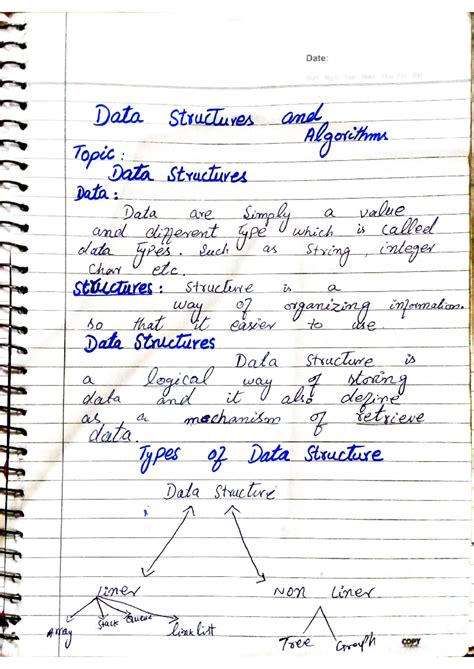 Date:
Data Structures and
Algorithms
Topic:
Data Structures
Data:
Data are Simply a value
and different type which is called
data types. Such as String, integer
Char etc.
Structures: Structure is a
way of organizing information.
so that it easier to use.
Data Structures
Data Structure is
a logical way of storing
data and it also define
as a mechanism of retrieve
data.
Types of Data Structure
Data Structure
Liner Non Liner
Array Stack Queue link list
Tree Graph
COPY